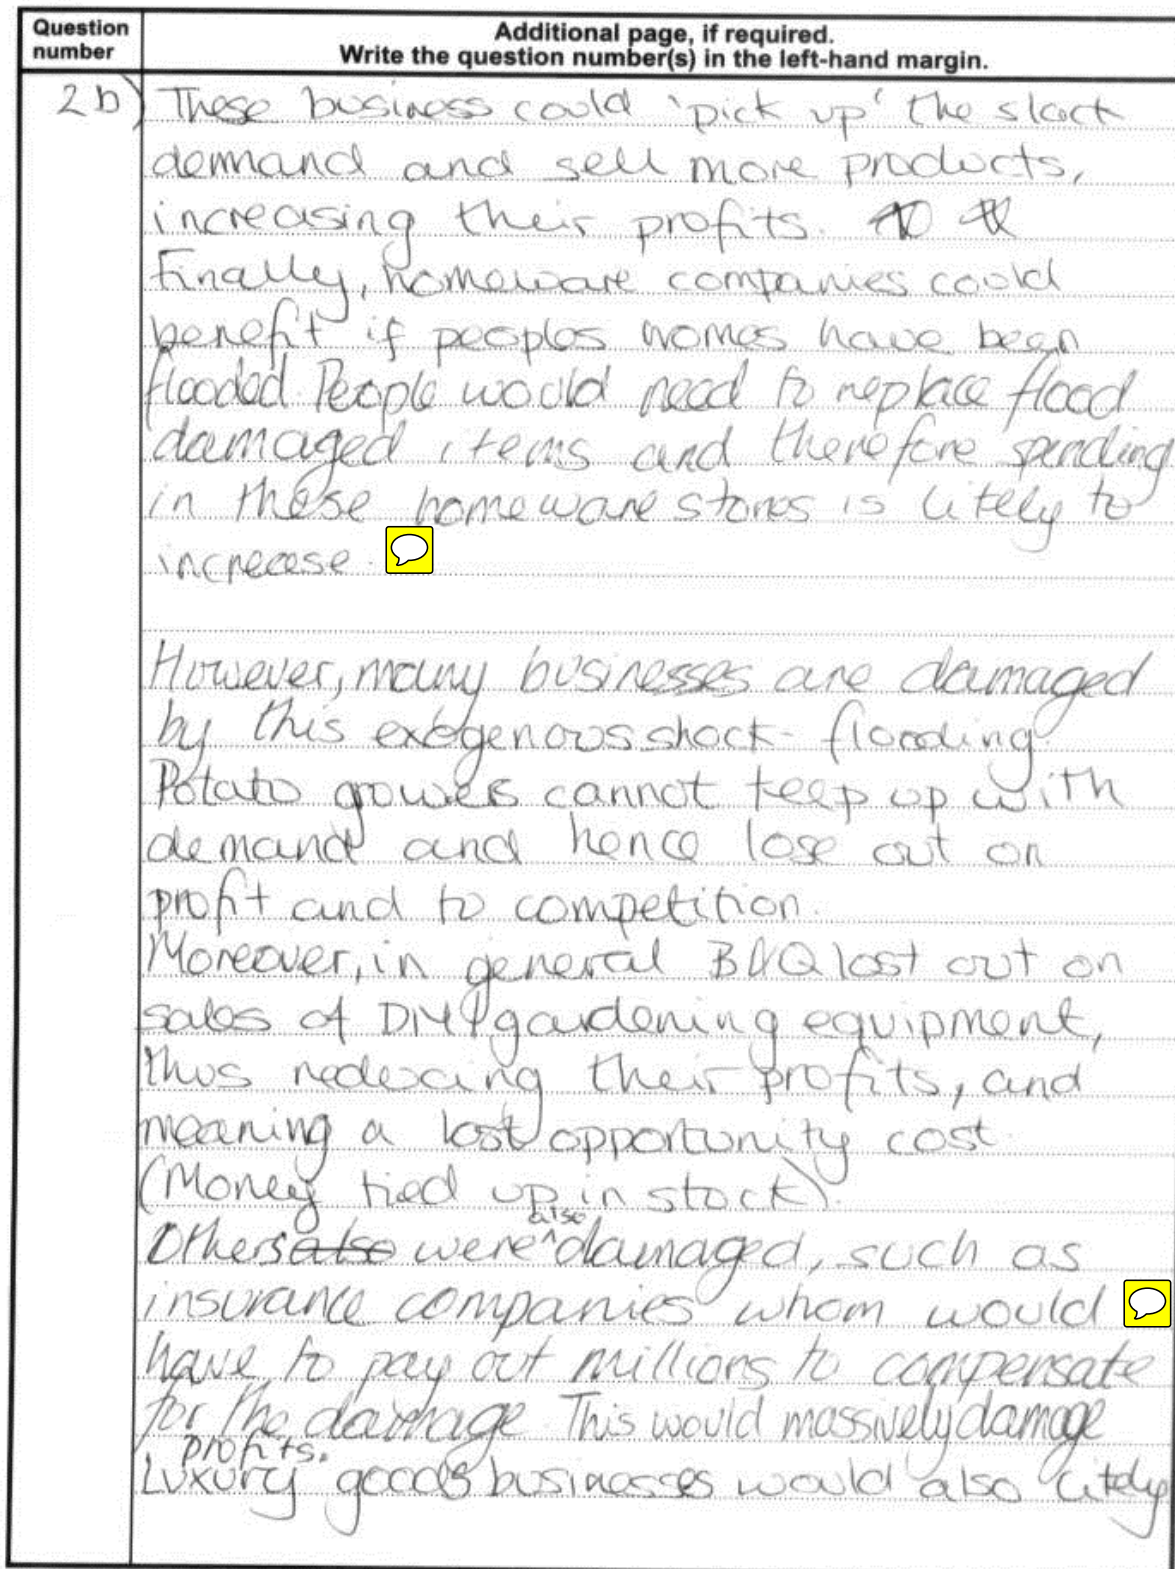 Question
number
Additional page, if required.
Write the question number(s) in the left-hand margin.
2b) These business could 'pick up' the slack
demand and sell more products,
increasing their profits.
Finally, homeware companies could
benefit if peoples homes have been
flooded. People would need to replace flood
damaged items and therefore spending
in these homeware stores is likely to
increase.
However, many businesses are damaged
by this exogenous shock - flooding.
Potato growers cannot keep up with
demand and hence lose out on
profit and to competition.
Moreover, in general B&Q lost out on
sales of DIY & gardening equipment,
thus reducing their profits, and
meaning a lost opportunity cost
(Money tied up in stock).
Others also were also damaged, such as
insurance companies whom would
have to pay out millions to compensate
for the damage. This would massively damage
profits.
Luxury goods businesses would also likely